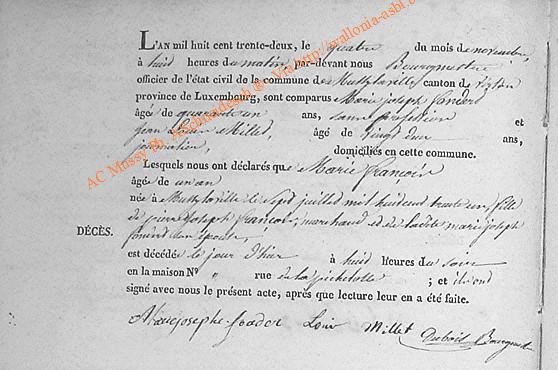 L'AN mil huit cent trente-deux, le quatre du mois de novembre,
à huit heures du matin, par-devant nous Bourgmestre
officier de l'état civil de la commune de Mussylaville canton de virton
province de Luxembourg, sont comparus Marie joseph
âgée de quarante un ans, sans profession et
jean Louis Millet, âgé de vingt deux ans,
journalier, domiciliés en cette commune.
Lesquels nous ont déclarés que Marie francois
âgée de un an
née à Mussylaville le sept juillet mil huit cent trente un, fille
de pierre joseph francois, marchand et de ladite marie joseph
son épouse,
DÉCÈS.
est décédée le jour d'hier à huit heures du soir
en la maison N° " rue de la ; et ils ont
signé avec nous le présent acte, après que lecture leur en a été faite.
Mariejosephe foader Louis Millet Dubois Bourgmestre
AC Mussy by Aschmadesch © Via http://wallonia-asbl.org